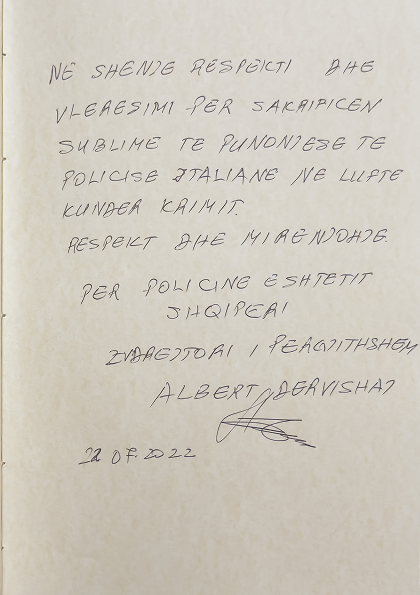 NE SHENJE RESPEKTI DHE
VLERESIMI PER SAKRIFICEN
SUBLIME TE PUNONJESE TE
POLICISE ITALIANE NE LUFTE
KUNDER KRIMIT.
RESPEKT DHE MIRENJOHJE.
PER POLICINE E SHTETIT
SHQIPERI
ZV/DREJTORI I PERGJITHSHEM
ALBERT DERVISHAJ
22 07. 2022